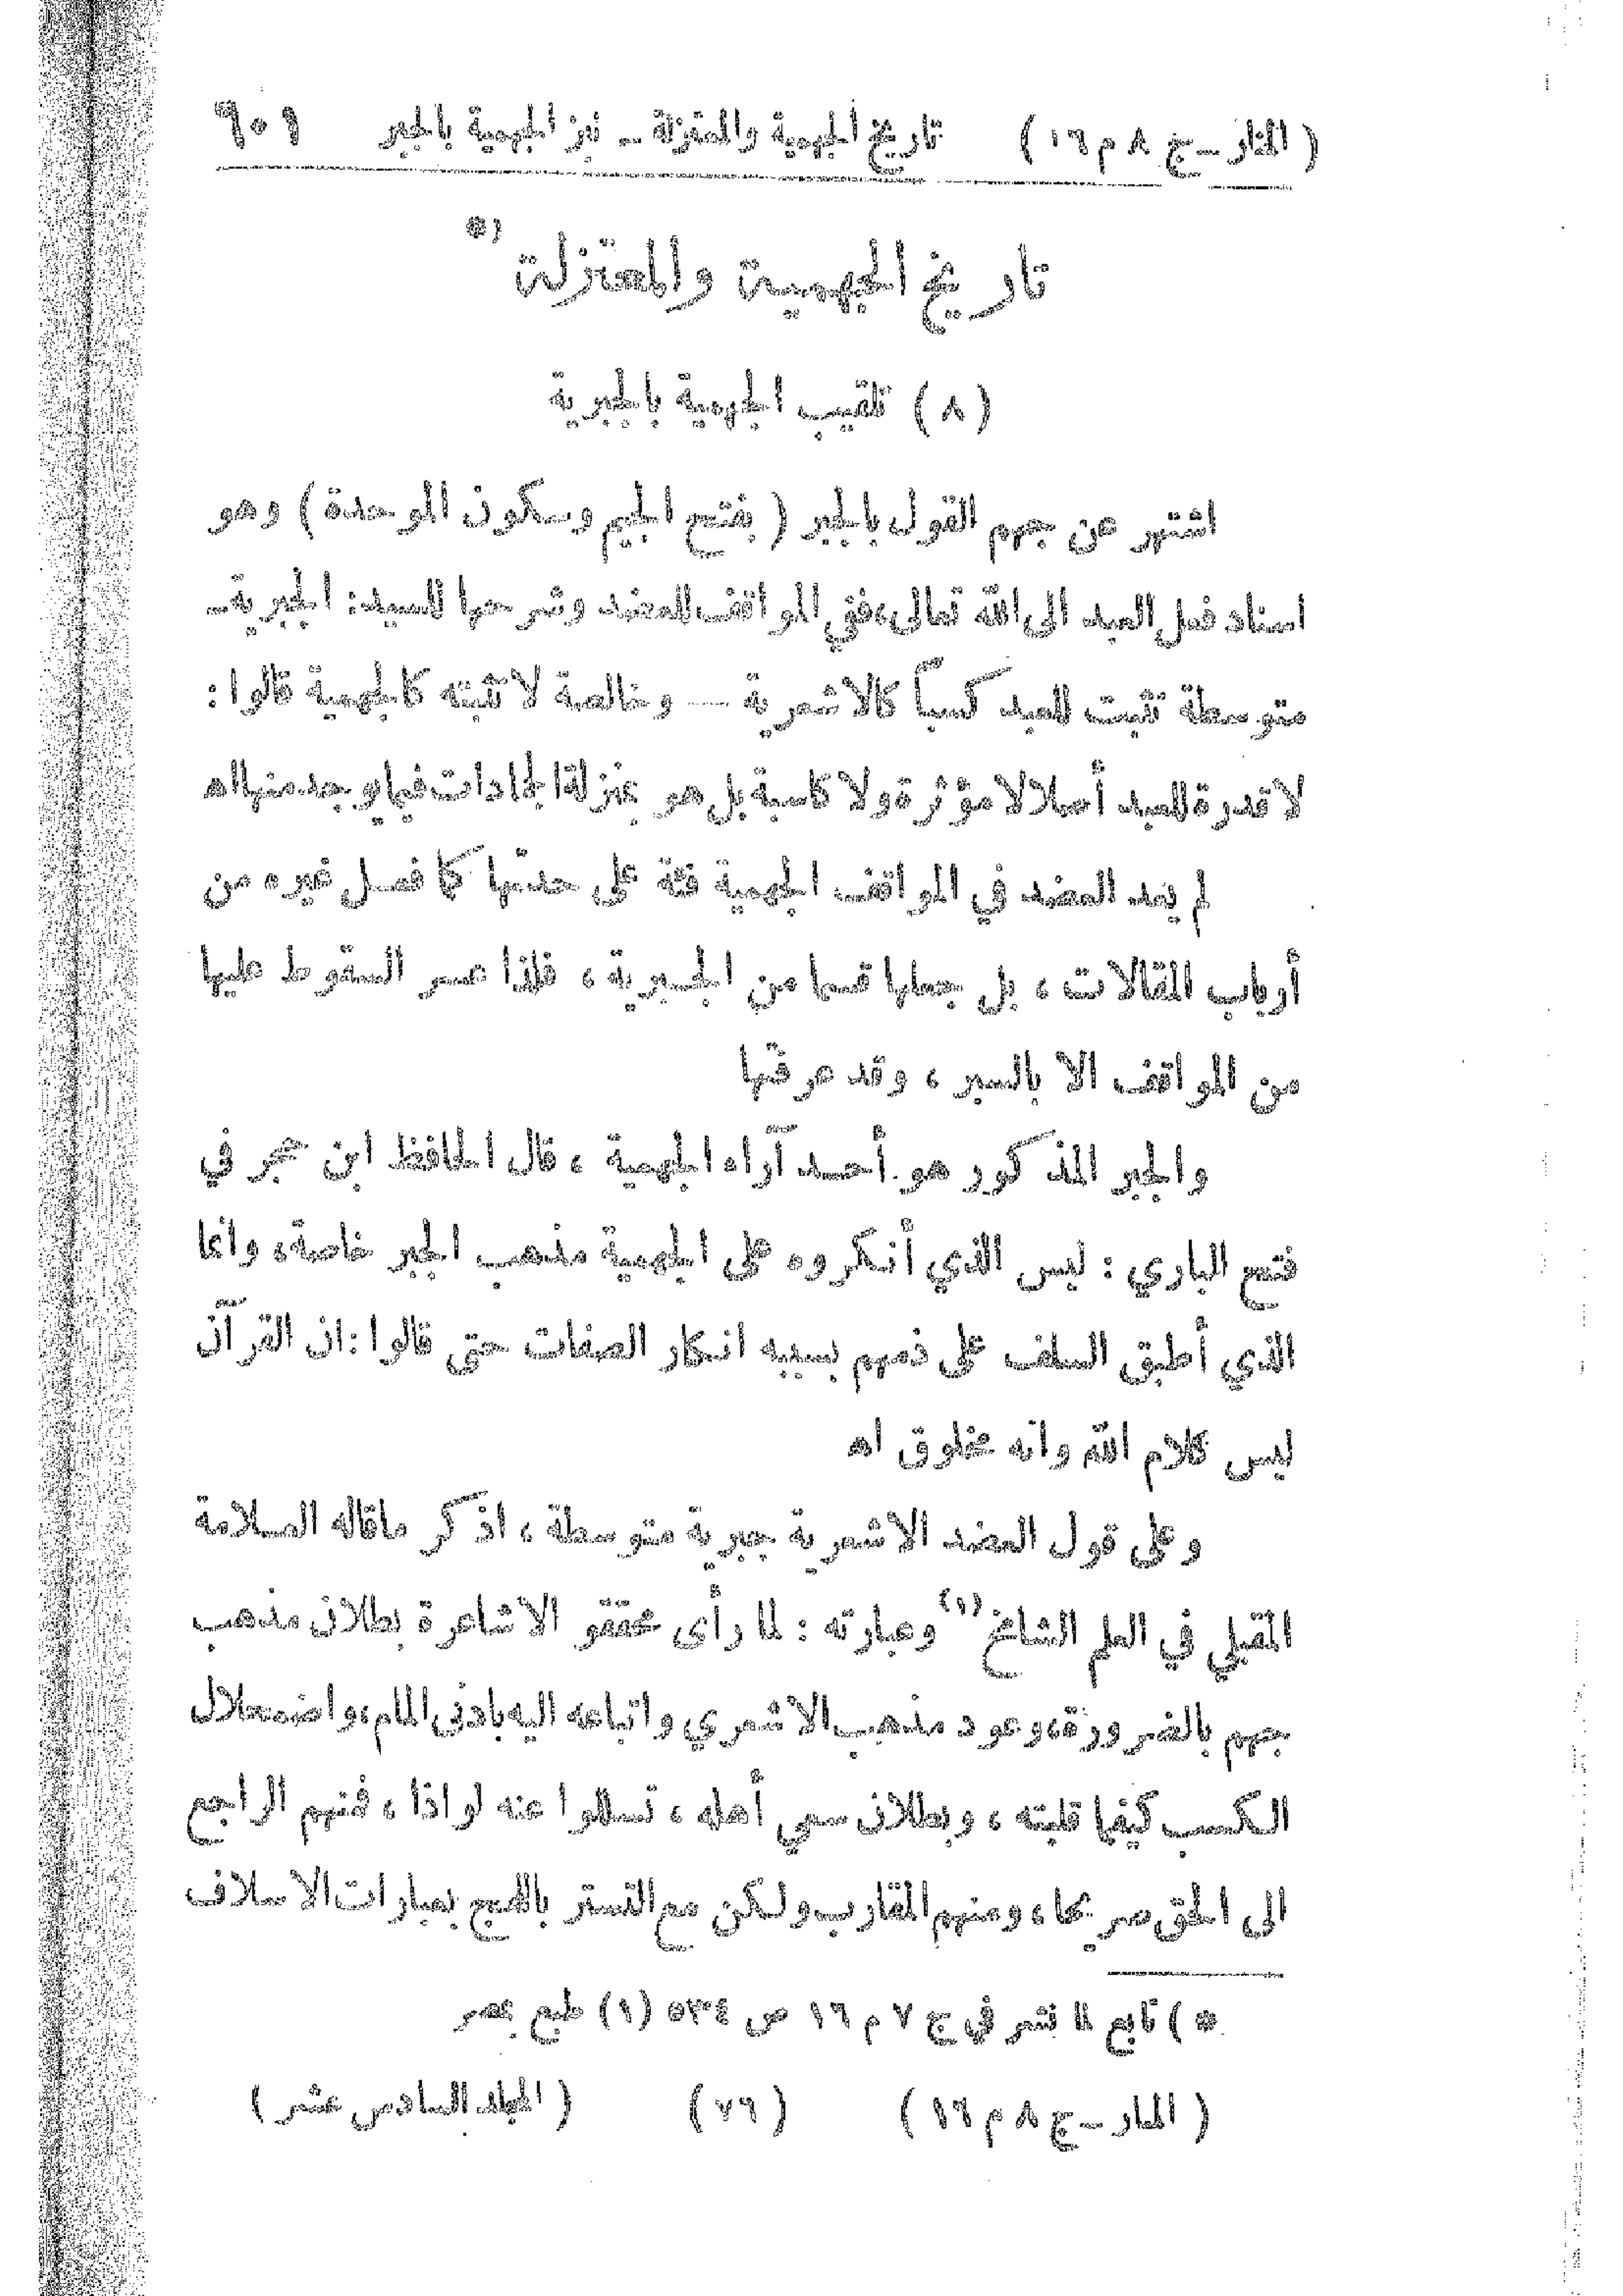 ( المنار ــ ج ٨ م ١٦ ) تاريخ الجهمية والمعتزلة ــ نبز الجهمية بالجبر ٦٠١
تاريخ الجهمية والمعتزلة *)
( ٨ ) تلقيب الجهمية بالجبرية
اشتهر عن جهم القول بالجبر ( بفتح الجيم وسكون الموحدة ) وهو
اسناد فعل العبد الى الله تعالى، ففي المواقف للعضد وشرحها للسيد: الجبرية ــ
متوسطة تثبت للعبد كسباً كالاشعرية — وخالصة لا تثبته كالجهمية قالوا :
لا قدرة للعبد أصلا لا مؤثرة ولا كاسبة بل هو بمنزلة الجمادات فيما يوجد منها اه
لم يعد العضد في المواقف الجهمية فئة على حدتها كما فعل غيره من
أرباب المقالات ، بل جعلها قسما من الجبرية ، فلذا عسر السقوط عليها
من المواقف الا بالسبر ، وقد عرفتها
والجبر المذكور هو أحد آراء الجهمية ، قال الحافظ ابن حجر في
فتح الباري : ليس الذي أنكروه على الجهمية مذهب الجبر خاصة ، وانما
الذي أطبق السلف على ذمهم بسببه انكار الصفات حتى قالوا : ان القرآن
ليس كلام الله وانه مخلوق اه
وعلى قول العضد الاشعرية جبرية متوسطة ، اذكر ماقاله العلامة
المقبلي في العلم الشامخ (١) وعبارته : لما رأى محققو الاشاعرة بطلان مذهب
جهم بالضرورة، وعود مذهب الاشعري واتباعه اليه بادنى المام، واضمحلال
الكسب كيفما قلبته ، وبطلان سعي أهله ، تسللوا عنه لواذا ، فمنهم الراجع
الى الحق صريحا ، ومنهم المقارب ولكن مع التستر باللهج بعبارات الاسلاف
* ) تابع لما نشر في ج ٧ م ١٦ ص ٥٣٤ (١) طبع بمصر
( المنار ــ ج ٨ م ١٦ ) ( ٧٦ ) ( المجلد السادس عشر )